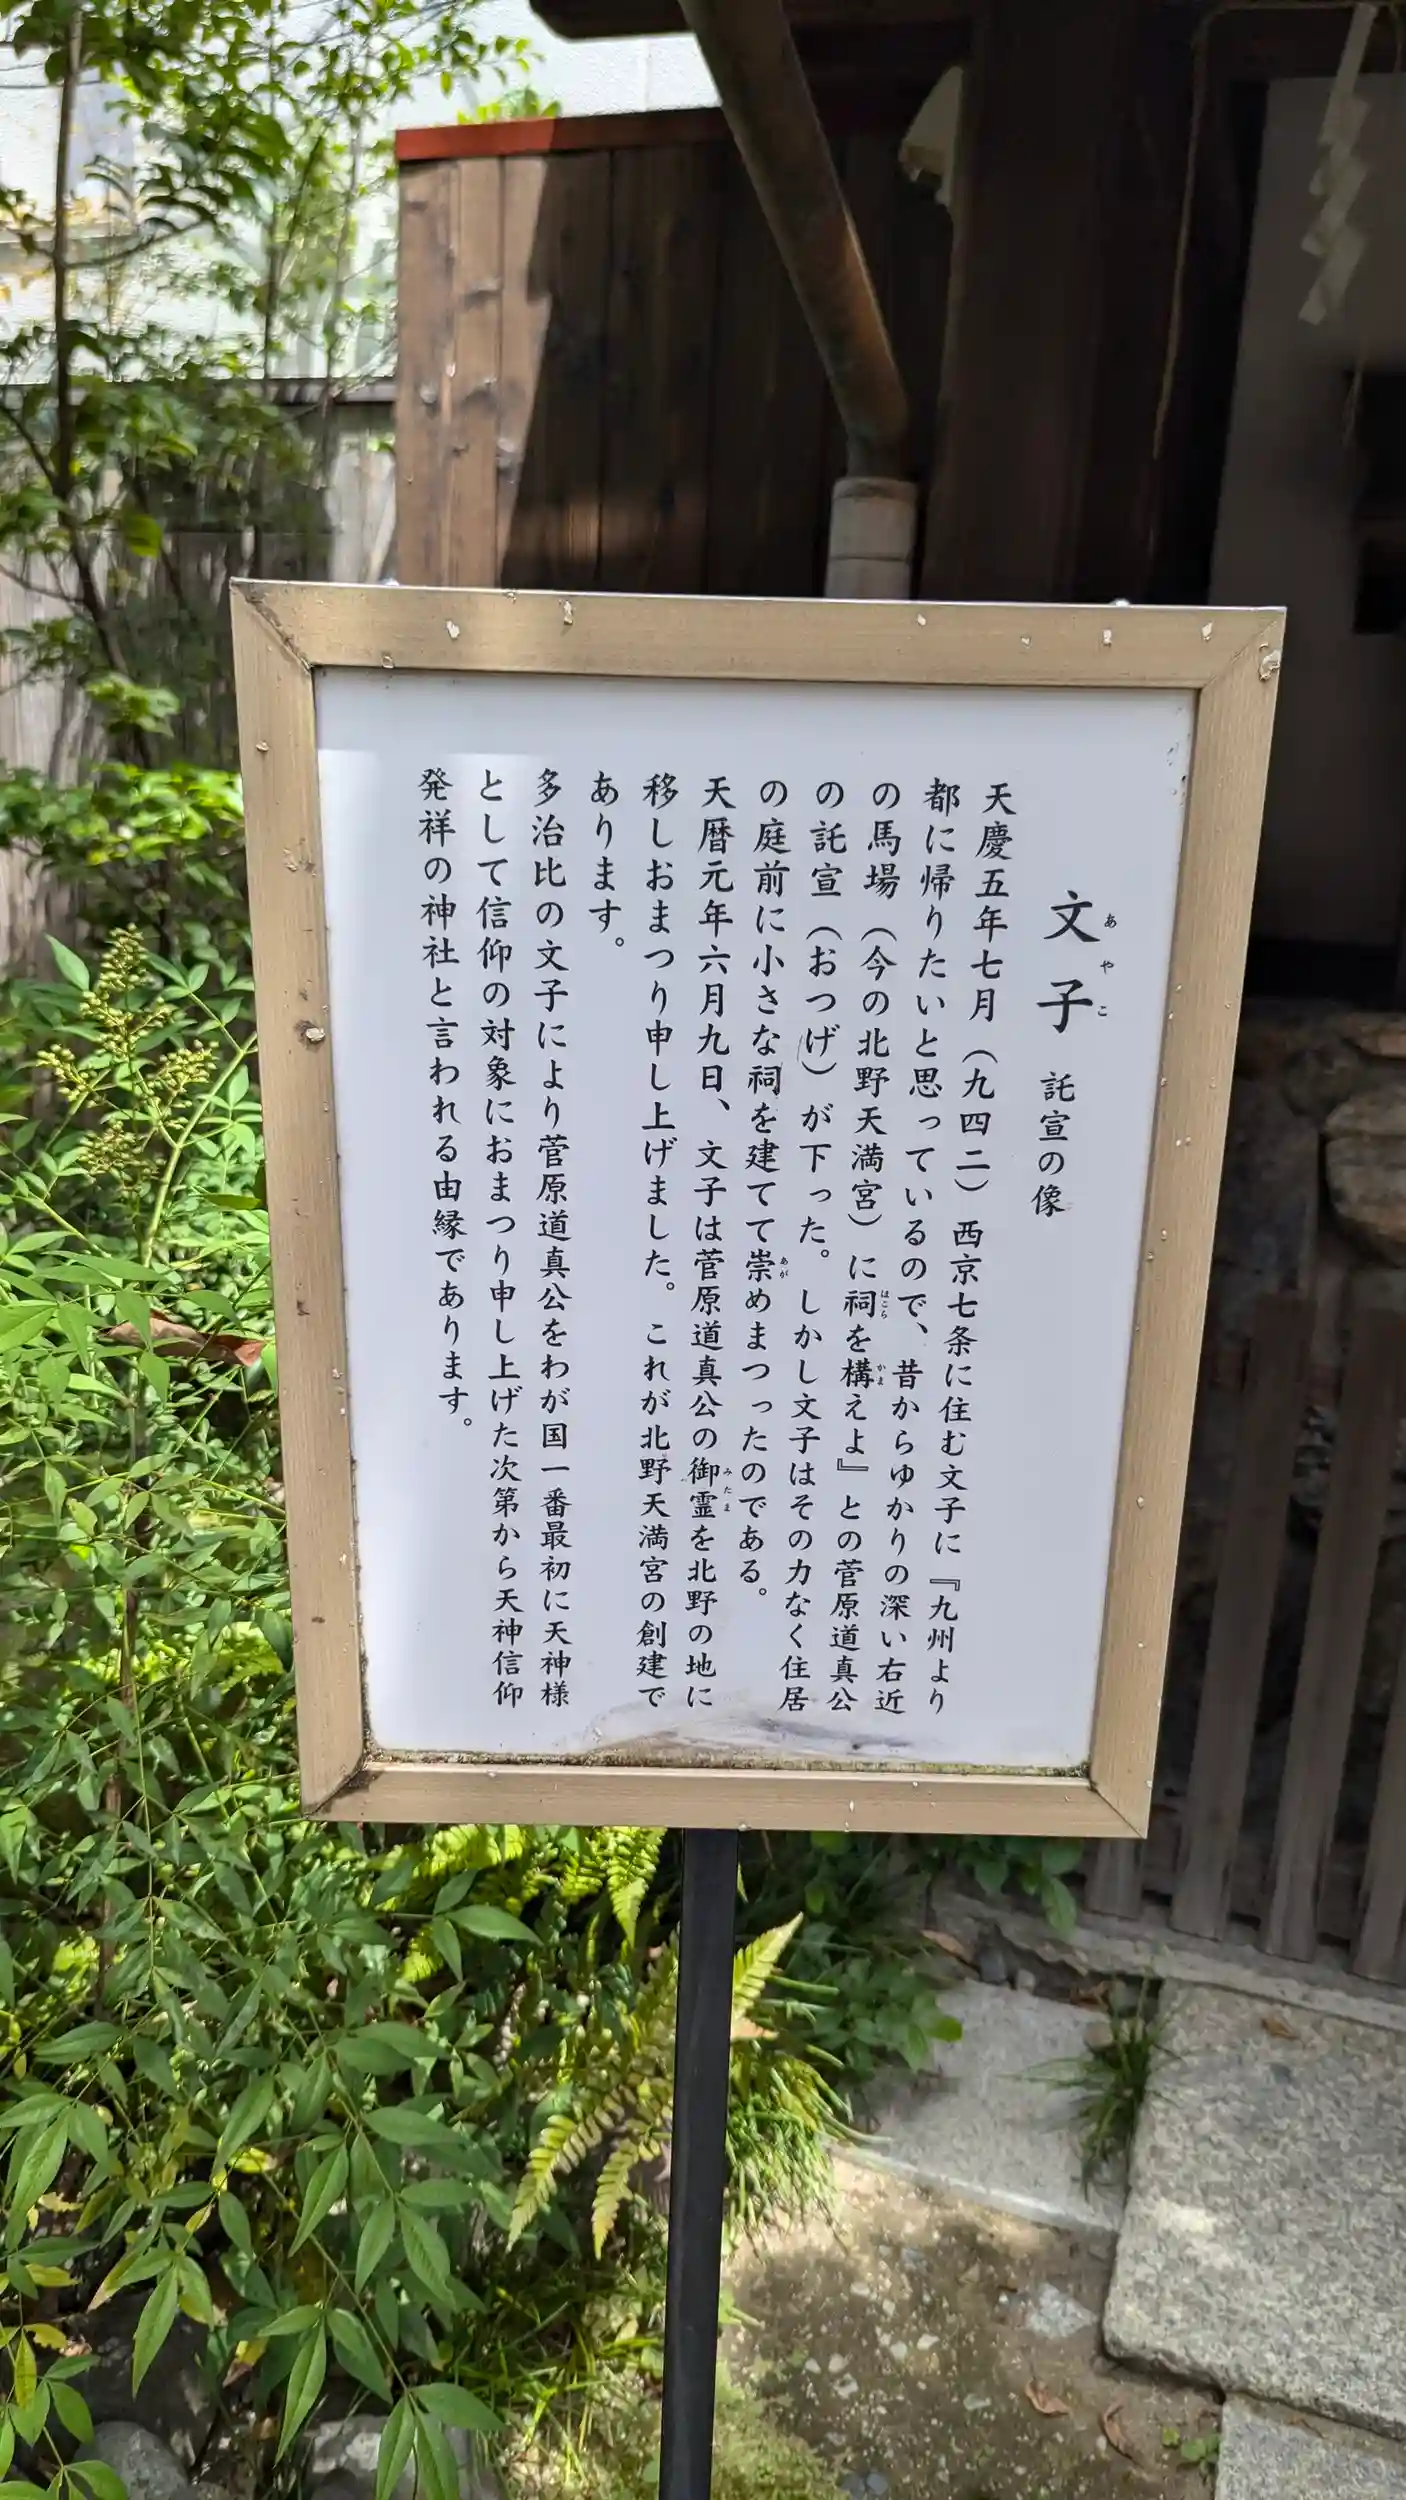 文子 託宣の像
あやこ
天慶五年七月（九四二）西京七条に住む文子に『九州より
都に帰りたいと思っているので、昔からゆかりの深い右近
の馬場（今の北野天満宮）に祠を構えよ』との菅原道真公
はこら
かま
の託宣（おつげ）が下った。しかし文子はその力なく住居
の庭前に小さな祠を建てて崇めまつったのである。
あが
天暦元年六月九日、文子は菅原道真公の御霊を北野の地に
みたま
移しおまつり申し上げました。これが北野天満宮の創建で
あります。
多治比の文子により菅原道真公をわが国一番最初に天神様
として信仰の対象におまつり申し上げた次第から天神信仰
発祥の神社と言われる由縁であります。